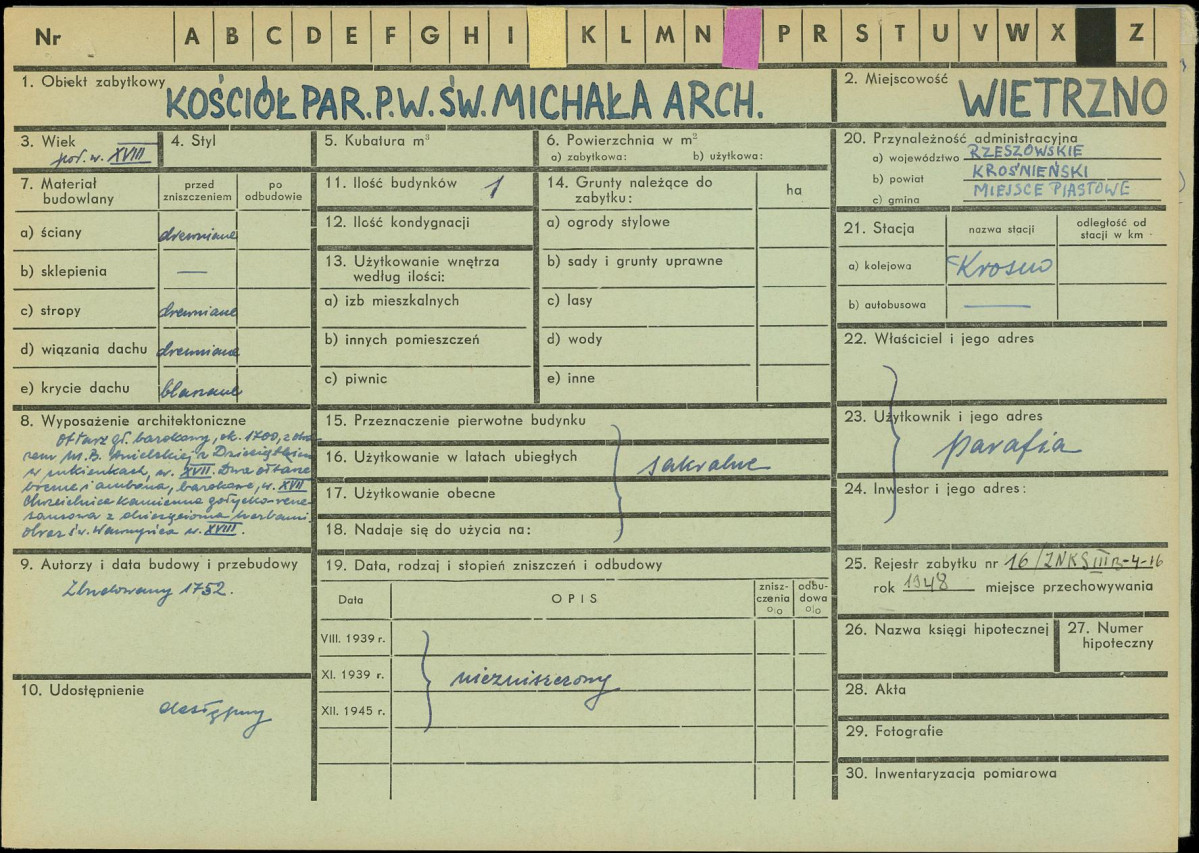 Nr A B C D E F G H I K L M N P R S T U V W X Z
1. Obiekt zabytkowy
KOŚCIÓŁ PAR. P.W. ŚW. MICHAŁA ARCH.
2. Miejscowość
WIETRZNO
3. Wiek
poł. w. XVIII
4. Styl
5. Kubatura m³
6. Powierzchnia w m²
a) zabytkowa: b) użytkowa:
7. Materiał budowlany
przed zniszczeniem
po odbudowie
a) ściany drewniane
b) sklepienia —
c) stropy drewniane
d) wiązania dachu drewniane
e) krycie dachu blaszane
8. Wyposażenie architektoniczne
Ołtarz gł. barokowy, ok. 1700, z obra-
zem M.B. Anielskiej z Dzieciątkiem
w sukienkach, w. XVII. Dwa ołtarze
boczne i ambona, barokowe, w. XVII
Chrzcielnica kamienna gotycko-rene-
sansowa z dziesięcioma herbami.
obraz św. Wawrzyńca w. XVIII.
9. Autorzy i data budowy i przebudowy
Zbudowany 1752.
10. Udostępnienie
dostępny
11. Ilość budynków 1
12. Ilość kondygnacji
13. Użytkowanie wnętrza
według ilości:
a) izb mieszkalnych
b) innych pomieszczeń
c) piwnic
14. Grunty należące do
zabytku:
ha
a) ogrody stylowe
b) sady i grunty uprawne
c) lasy
d) wody
e) inne
15. Przeznaczenie pierwotne budynku
16. Użytkowanie w latach ubiegłych
sakralne
17. Użytkowanie obecne
18. Nadaje się do użycia na:
19. Data, rodzaj i stopień zniszczeń i odbudowy
Data
OPIS
znisz-
czenia
o|o
odbu-
dowa
o|o
VIII. 1939 r.
XI. 1939 r.
niezniszczony
XII. 1945 r.
20. Przynależność administracyjna
a) województwo RZESZOWSKIE
b) powiat KROŚNIEŃSKI
c) gmina MIEJSCE PIASTOWE
21. Stacja
nazwa stacji
odległość od
stacji w km
a) kolejowa Krosno
b) autobusowa —
22. Właściciel i jego adres
23. Użytkownik i jego adres
parafia
24. Inwestor i jego adres:
25. Rejestr zabytku nr 16/ZNKS III B-4-16
rok 1948 miejsce przechowywania
26. Nazwa księgi hipotecznej
27. Numer
hipoteczny
28. Akta
29. Fotografie
30. Inwentaryzacja pomiarowa